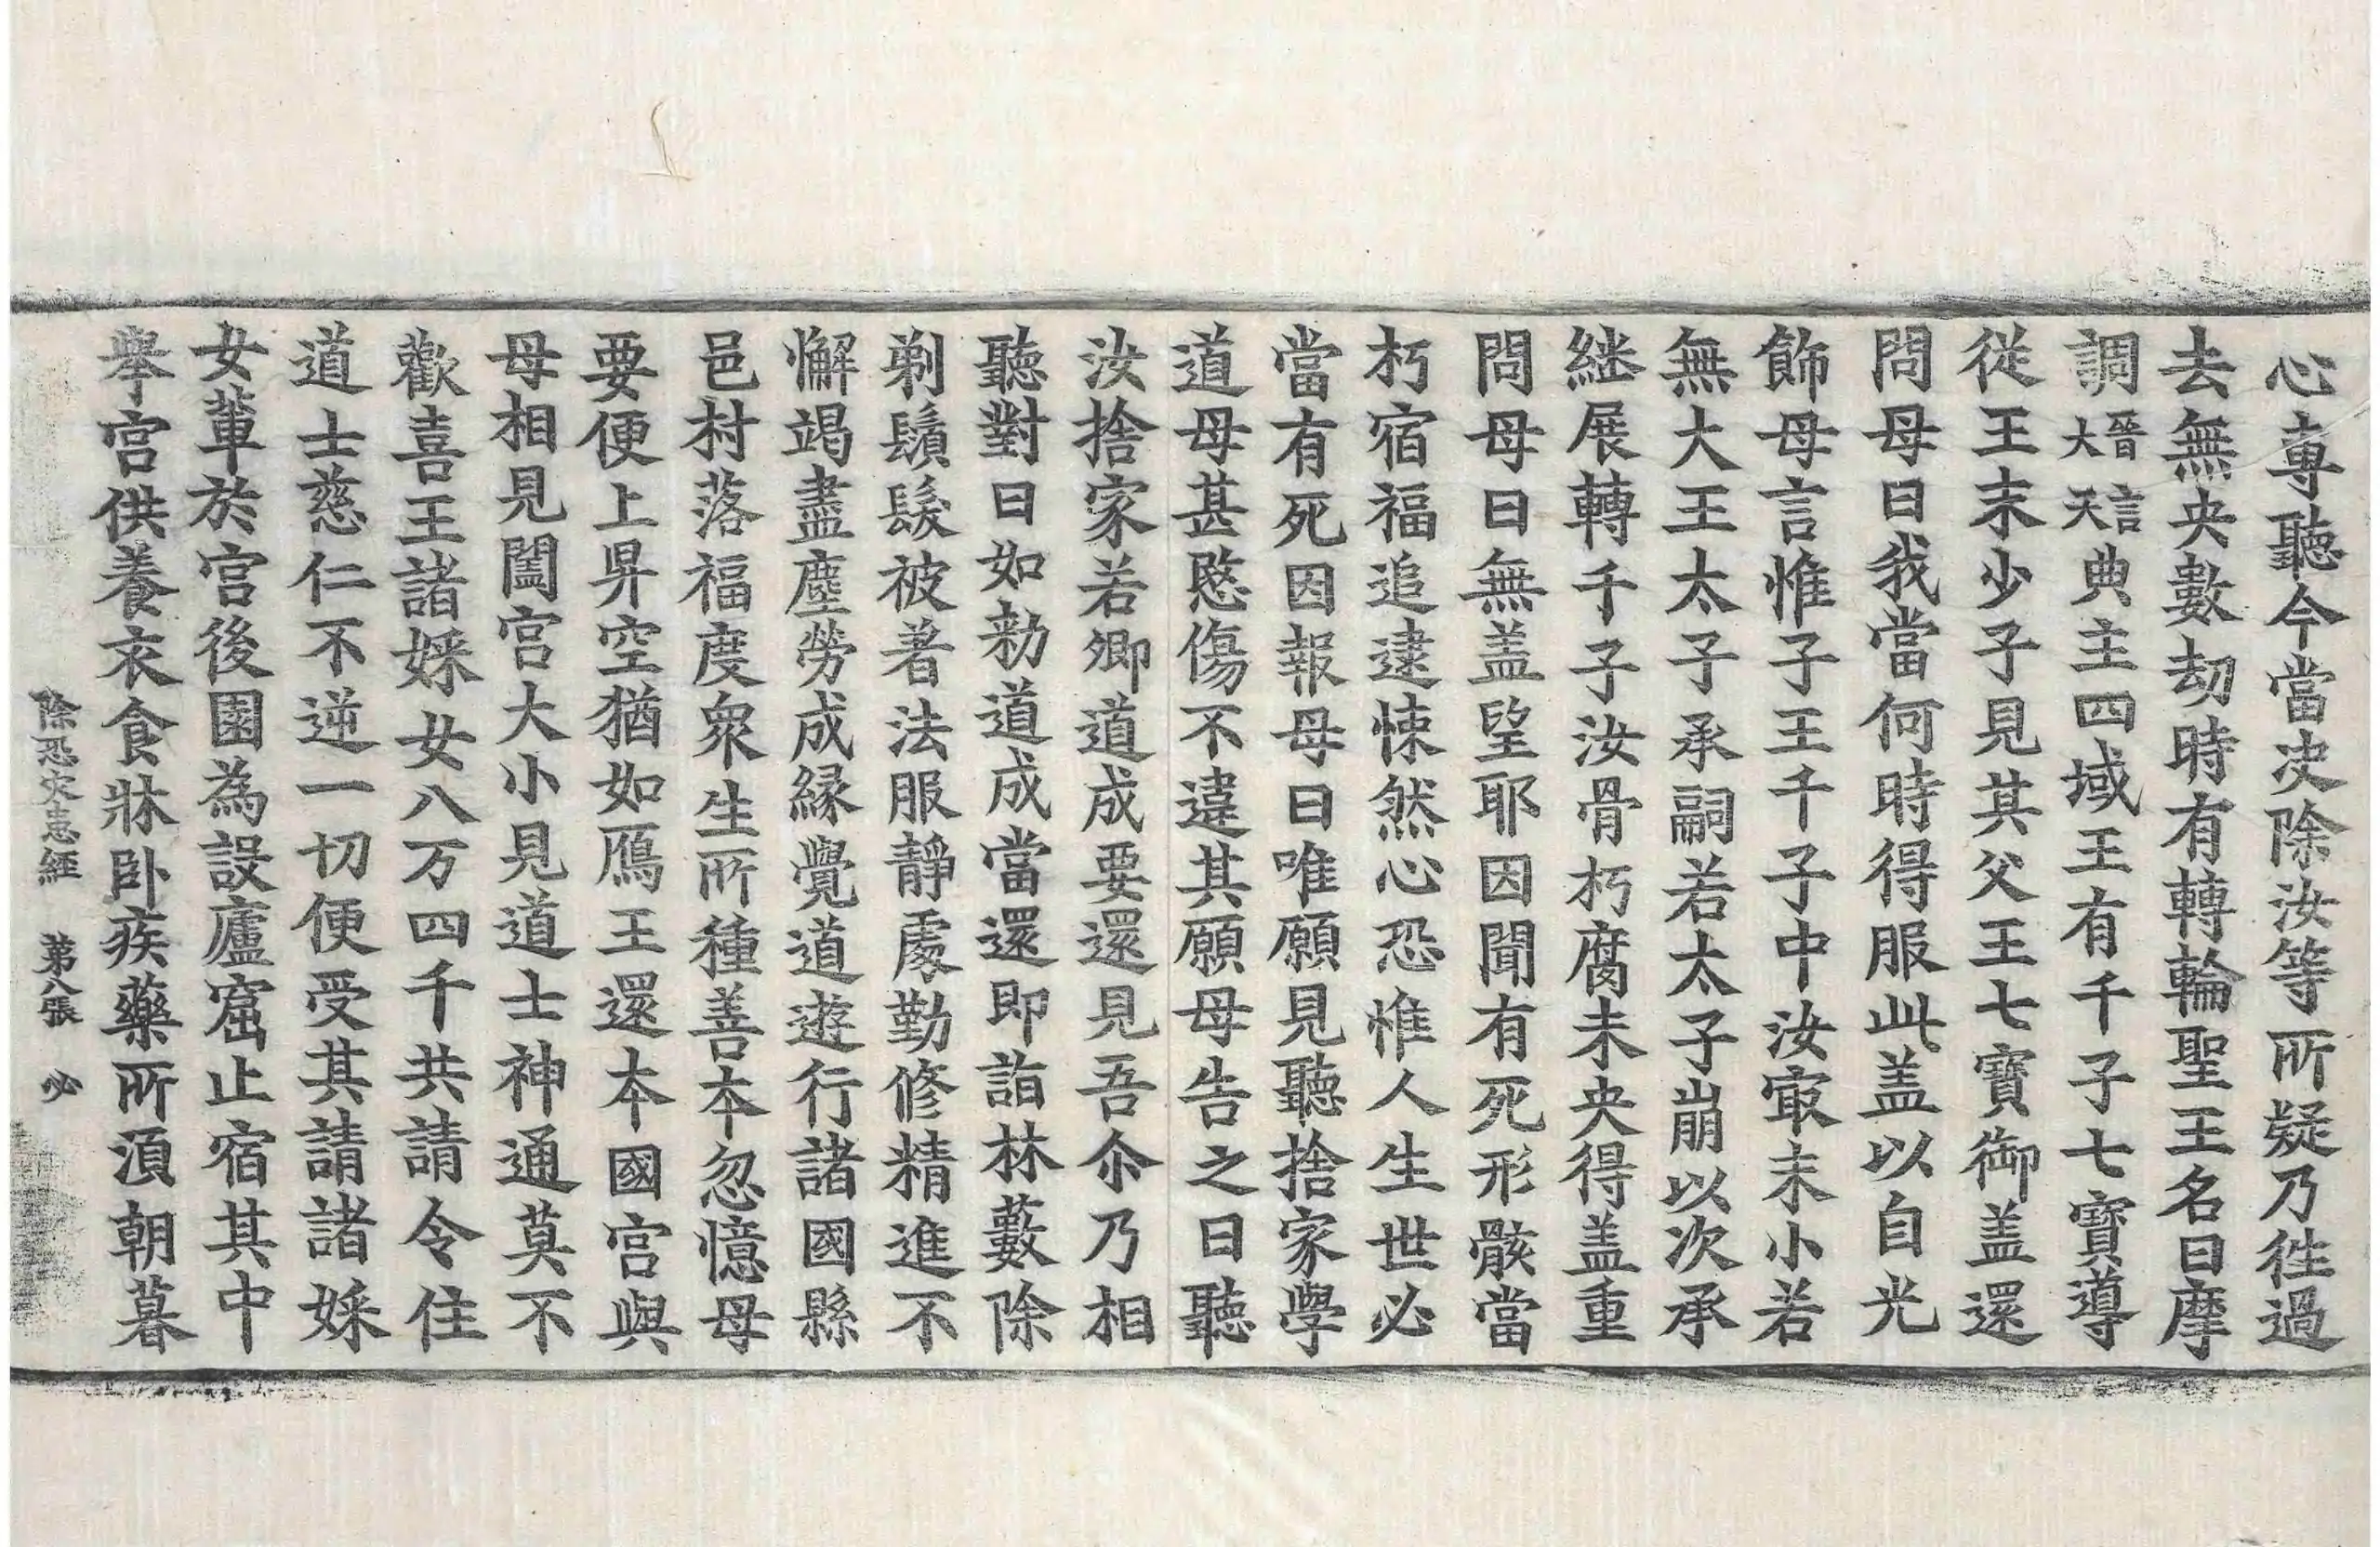 心專聽今當決除汝等所疑乃徃過
去無央數劫時有轉輪聖王名曰摩
調晉言大天典主四域王有千子七寶導
從王末少子見其父王七寶御盖還
問母曰我當何時得服此盖以自光
飾母言惟子王千子中汝㝡末小若
無大王太子承嗣若太子崩以次承
継展轉千子子汝骨朽腐未央得盖重
問母曰無盖望耶因聞有死形骸當
朽宿福追逮悚然心恐惟人生世必
當有死因報母曰唯願見聽捨家學
道母甚愍傷不違其願母告之曰聽
汝捨家若卿道成要還見吾尒乃相
聽對曰如勑道成當還即詣林藪除
剃鬚髮被著法服靜處勤修精進不
懈竭盡塵勞成縁覺道遊行諸國縣
邑村落福度衆生所種善本忽憶母
要便上昇空猶如鴈王還本國宮與
母相見闔宮大小見道士神通莫不
歡喜王諸婇女八万四千共請令住
道士慈仁不逆一切便受其請諸婇
女輩於宮後園為設廬窟止宿其中
舉宮供養衣食牀卧疾藥所湏朝暮
除恐灾患經　第八張　必